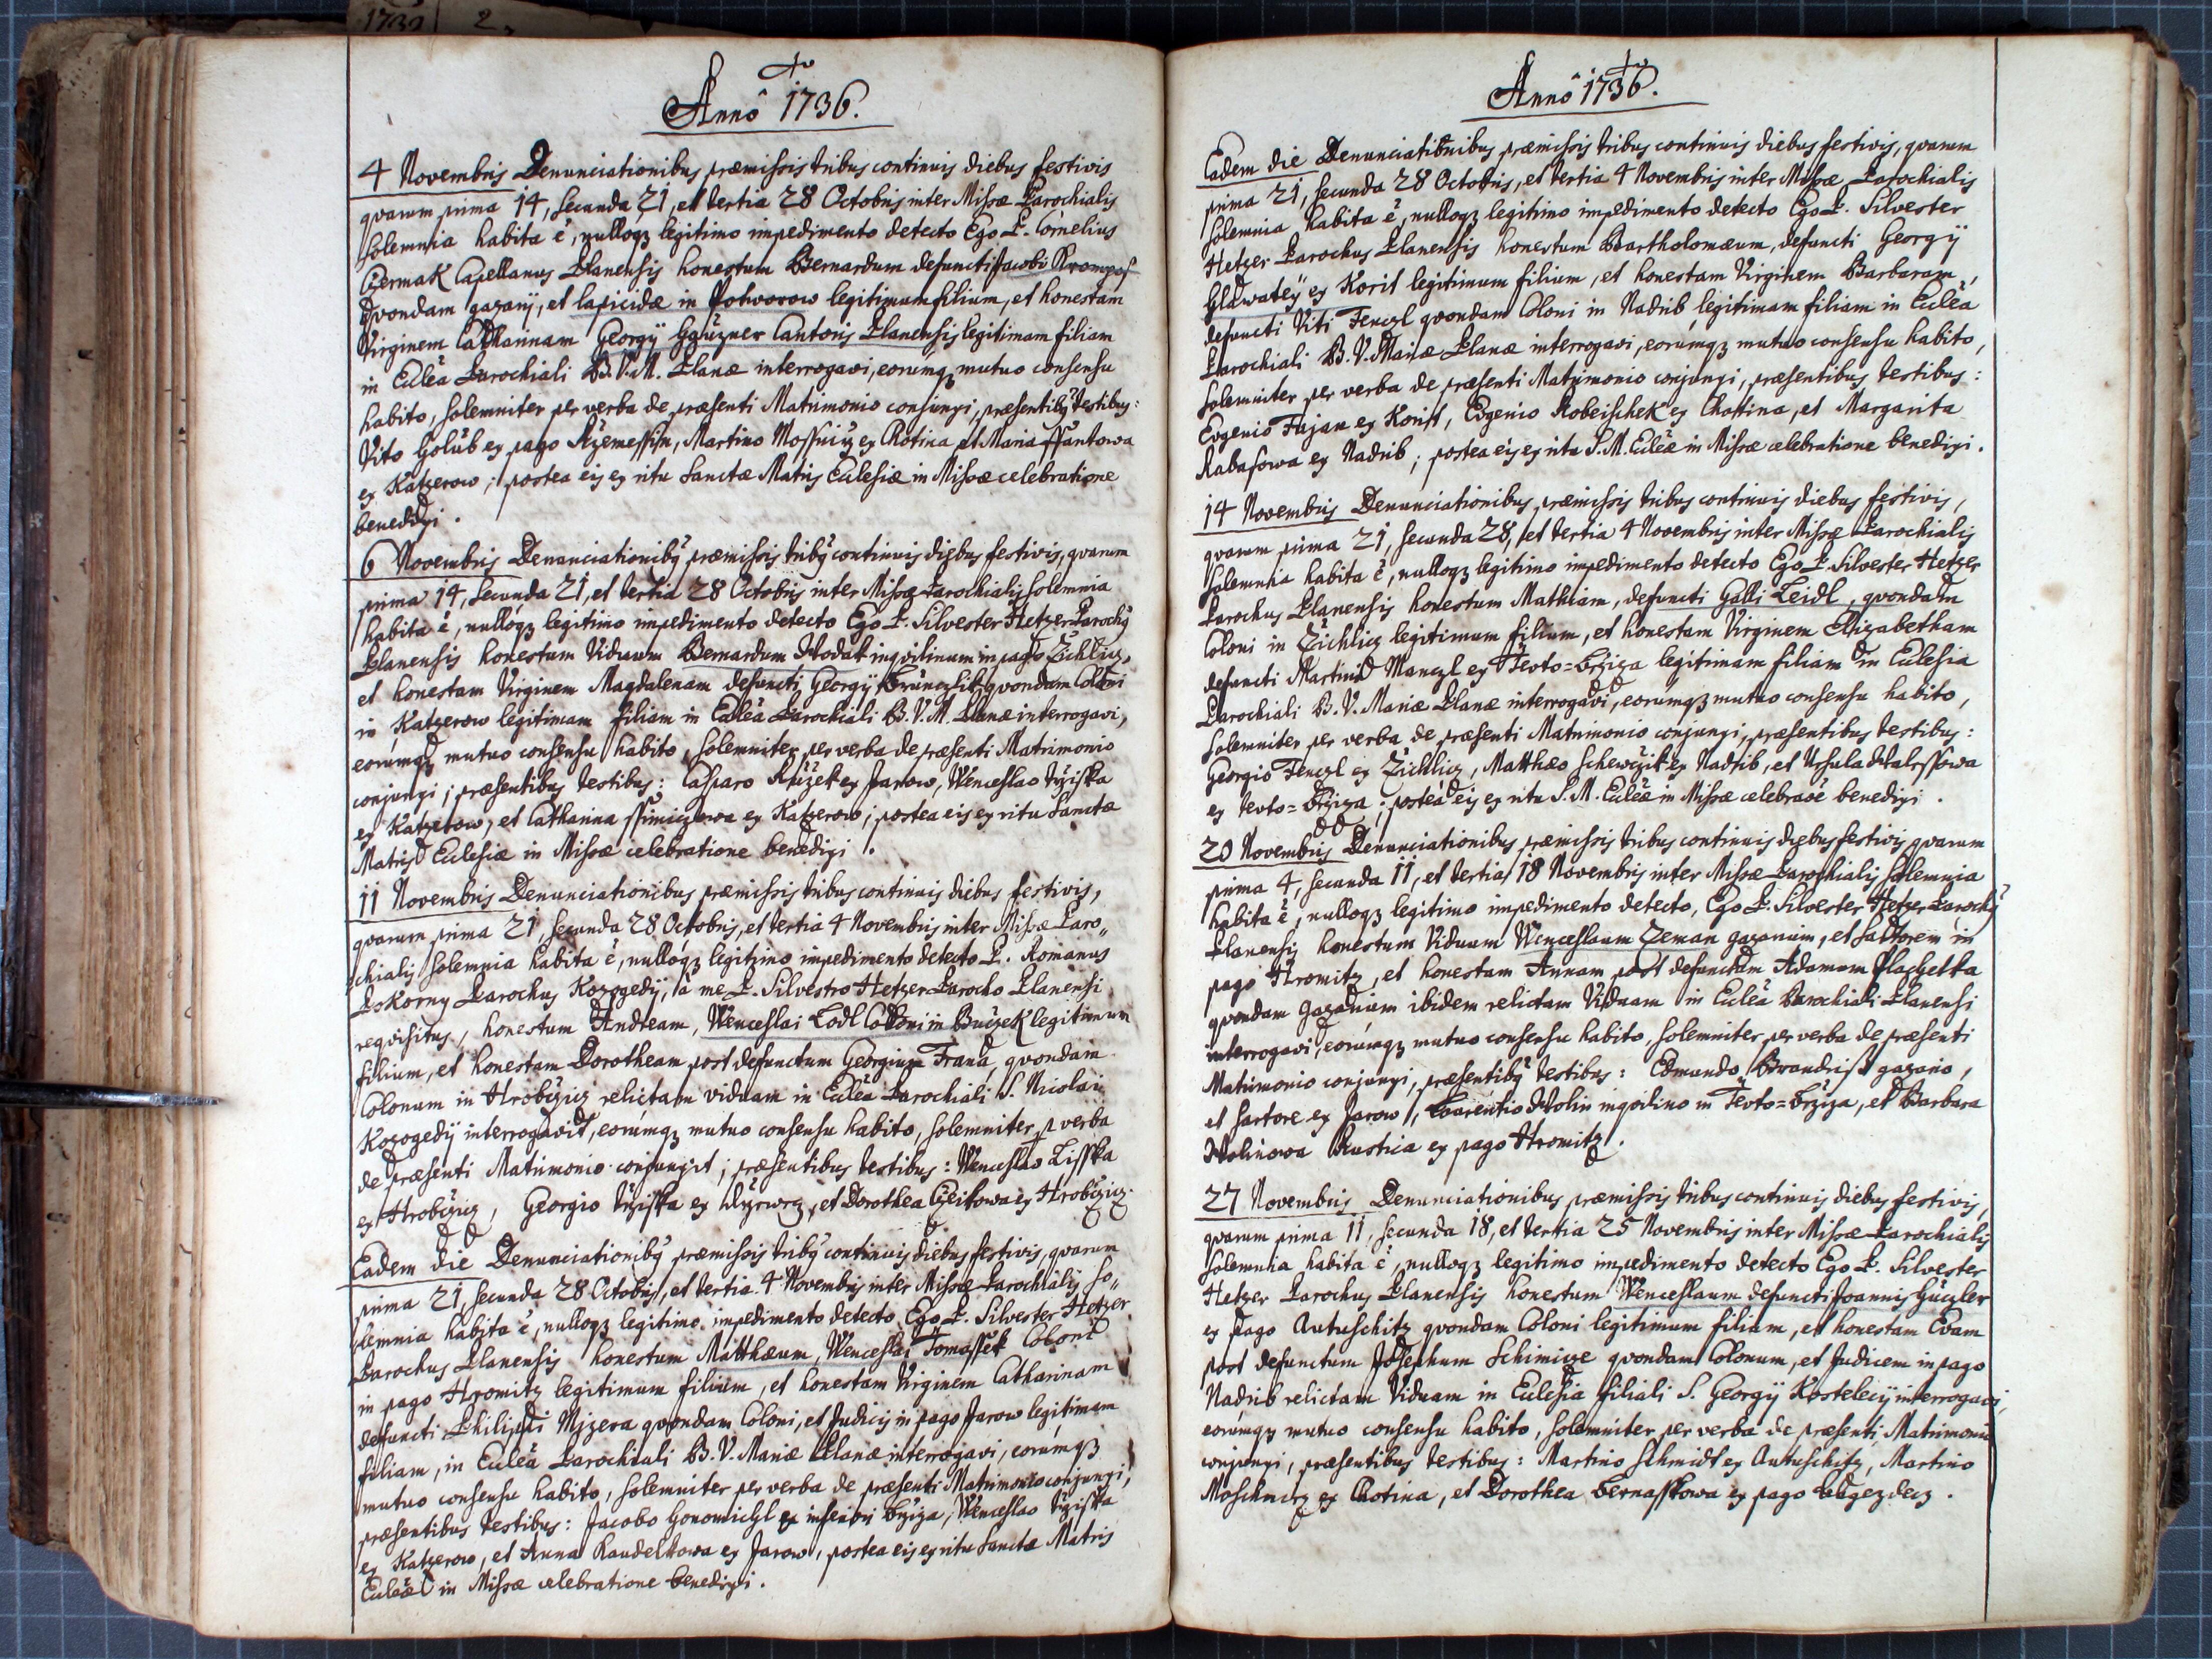 1739 2
Annô 1736.
4 Novembris Denunciationibus præmissis tribus continuis diebus festivis
qvarum prima 14, secunda 21, et tertia 28 Octobris inter Missæ Parochialis
solemnia habita ẽ, nulloqꝫ legitimo impedimento detecto Ego P. Cornelius
Czermak Capellanus Planensis honestum Bernardum defuncti Jacobi
qvondam gazarij, et lapicidæ in Potworow legitimum filium, et honestam
Virginem Catharinam Georgÿ Cantoris Planensis legitimam filiam
in Ecclēa Parochiali B.V.M. Planæ interrogavi, eorúmqꝫ mutuo consensu
habito, solemniter per verba de præsenti Matrimonio conjunxi, præsentibꝰ testibus:
Vito Golub ex pago Rzemessin, Martino Mossnicz ex Chotina et Maria ssantowa
ex Katzerow; postea eis ex ritu Sanctæ Matris Ecclesiæ in Missæ celebratione
benedixi.
6 Novembris Denunciationibꝰ præmissis tribꝰ continuis diebus festivis, qvarum
prima 14, secunda 21, et tertia 28 Octobris inter Missæ Parochialis solemnia
habita ẽ, nullóqꝫ legitimo impedimento detecto Ego P. Silvester Hetzer Parochꝰ
Planensis honestum Viduum Bernardum Hodak inqvilinum in pago Zichlicz,
et honestam Virginem Magdalenam defuncti Georgÿ qvondam Coloni
in Katzerow legitimam filiam in Ecclēa Parochiali B.V.M. Planæ interrogavi,
eorúmqꝫ mutuo consensu habito, solemniter per verba de præsenti Matrimonio
conjunxi; præsentibus testibus: Casparo Ružek ex Jarow, Wenceslao Tržiska
ex Katzerow, et Catharina ssimiczowa ex Katzerow; postea eis ex ritu Sanctæ
Matris Ecclesiæ in Missæ celebratione benedixi.
11 Novembris Denunciationibus præmissis tribus continuis diebus festivis,
qvarum prima 21 secunda 28 Octobris, et tertia 4 Novembris inter Missæ Paro„
chialis solemnia habita ẽ, nullóqꝫ legitimo impedimento detecto P. Romanus
Pokorny Parochus Kozogedÿ, à me P. Silvestro Hetzer Parocho Planensi
reqvisitus, honestum Andream, Wenceslai Lodl Coloni in Buczek legitimum
filium, et honestam Dorotheam post defunctum Georgium Frana, qvondam
Colonum in Hrobczicz relictam viduam in Ecclēa Parochiali S. Nicolai
Kozogedÿ interrogavit, eorúmqꝫ mutuo consensu habito, solemniter p verba
de præsenti Matrimonio conjunxit; præsentibus testibus: Wenceslao Lisska
ex Hrobczicz, Georgio Tržiska ex et Dorothea Czeikowa ex Hrobczicz.
Eadem die Denunciationibꝰ præmissis tribꝰ continuis diebus festivis, qvarum
prima 21, secunda 28 Octobris, et tertia 4 Novembris inter Missæ Parochialis so„
lemnia habita ẽ, nulloqꝫ legitimo impedimento detecto Ego P. Silvester Hetzer
Parochus Planensis honestum Matthæum, Wenceslai Tomassek Coloni
in pago Hromitz legitimum filium, et honestam Virginem Catharinam
defuncti Philippi Mjzera qvondam Coloni, et Judicis in pago Jarow legitimam
filiam, in Ecclēa Parochiali B.V. Mariæ Planæ interrogavi, eorúmqꝫ
mutuo consensu habito, solemniter per verba de præsenti Matrimonio conjunxi,
præsentibus testibus: Jacobo ex inferiori Bržiza, Wenceslao Tržiska
ex Katzerow, et Anna Raudelkowa ex Jarow, postea eis ex ritu Sanctæ Matris
Ecclēæ in Missæ celebratione benedixi.
Annô 1736.
Eadem die Denunciationibus præmissis tribus continuis diebus festivis, qvarum
prima 21, secunda 28 Octobris, et tertia 4 Novembris inter Missæ Parochialis
solemnia habita ẽ, nulloqꝫ legitimo impedimento detecto Ego P. Silvester
Hetzer Parochus Planensis honestum Bartholomæum, defuncti Georgÿ
Hlawatey ex Korit legitimum filium, et honestam Virginem Barbaram,
defuncti Viti Fenczl qvondam Coloni in Nadrib legitimam filiam in Ecclēa
Parochiali B.V. Mariæ Planæ interrogavi, eorúmqꝫ mutuo consensu habito,
solemniter per verba de præsenti Matrimonio conjunxi, præsentibus testibus:
Evgenio Fajan ex Korit, Evgenio Robeischek ex Chottina, et Margarita
Rabasowa ex Nadrib; postea eis ex ritu S.M. Ecclēæ in Missæ celebratione benedixi.
14 Novembris Denunciationibus præmissis tribus continuis diebus festivis,
qvarum prima 21, secunda 28, et tertia 4 Novembris inter Missæ Parochialis
solemnia habita ẽ, nulloqꝫ legitimo impedimento detecto Ego P. Silvester Hetzer
Parochus Planensis honestum Mathiam, defuncti Galli Leidl, qvondam
Coloni in Zichlicz legitimum filium, et honestam Virginem Elizabetham
defuncti Martini Manczl ex Tevto=Bržiza legitimam filiam in Ecclesia
Parochiali B.V. Mariæ Planæ interrogavi, eorúmqꝫ mutuo consensu habito,
solemniter per verba de præsenti Matrimonio conjunxi, præsentibus testibus:
Georgio Fenczl ex Zichlicz, Matthæo Schewczik ex Nadrib, et Ursula
ex tevto=Bržiza; postea eis ex ritu S.M. Ecclēæ in Missæ celebraõe benedixi.
20 Novembris Denunciationibus præmissis tribus continuis diebus festivis qvarum
prima 4, secunda 11, et tertia 18 Novembris inter Missæ Parochialis solemnia
habita ẽ, nulloqꝫ legitimo impedimento detecto, Ego P. Silvester Hetzer Parochꝰ
Planensis honestum Viduum Wenceslaum Zeman gazarium, et sartorem in
pago Hromitz, et honestam Annam post defunctum Adamum Plachetka
qvondam gazarium ibidem relictam Viduam in Ecclēa Parochiali Planensi
interrogavi, eorúmqꝫ mutuo consensu habito, solemniter per verba de præsenti
Matrimonio conjunxi, præsentibꝰ testibus: Edmundo Brandrist gazario,
et sartore ex Jarow, Laurentio Holin inqvilino in Tevto=Bržiza, et Barbara
Holinowa Rustica ex pago Hromitz.
27 Novembris Denunciationibus præmissis tribus continuis diebus festivis,
qvarum prima 11, secunda 18, et tertia 25 Novembris inter Missæ Parochialis
solemnia habita ẽ, nulloqꝫ legitimo impedimento detecto Ego P. Silvester
Hetzer Parochus Planensis honestum Wenceslaum defuncti Joannis Huczler
ex pago Autuschitz qvondam Coloni legitimum filium, et honestam Evam
post defunctum Josephum Schimicze qvondam Colonum, et Judicem in pago
Nadrib relictam Viduam in Ecclesia filiali S. Georgÿ Kostelecij interrogavi,
eorúmqꝫ mutuo consensu habito, solemniter per verba de præsenti Matrimonio
conjunxi, præsentibus testibus: Martino Schmidt ex Autuschitz, Martino
Moschnicz ex Chotina, et Dorothea Bernasskowa ex pago